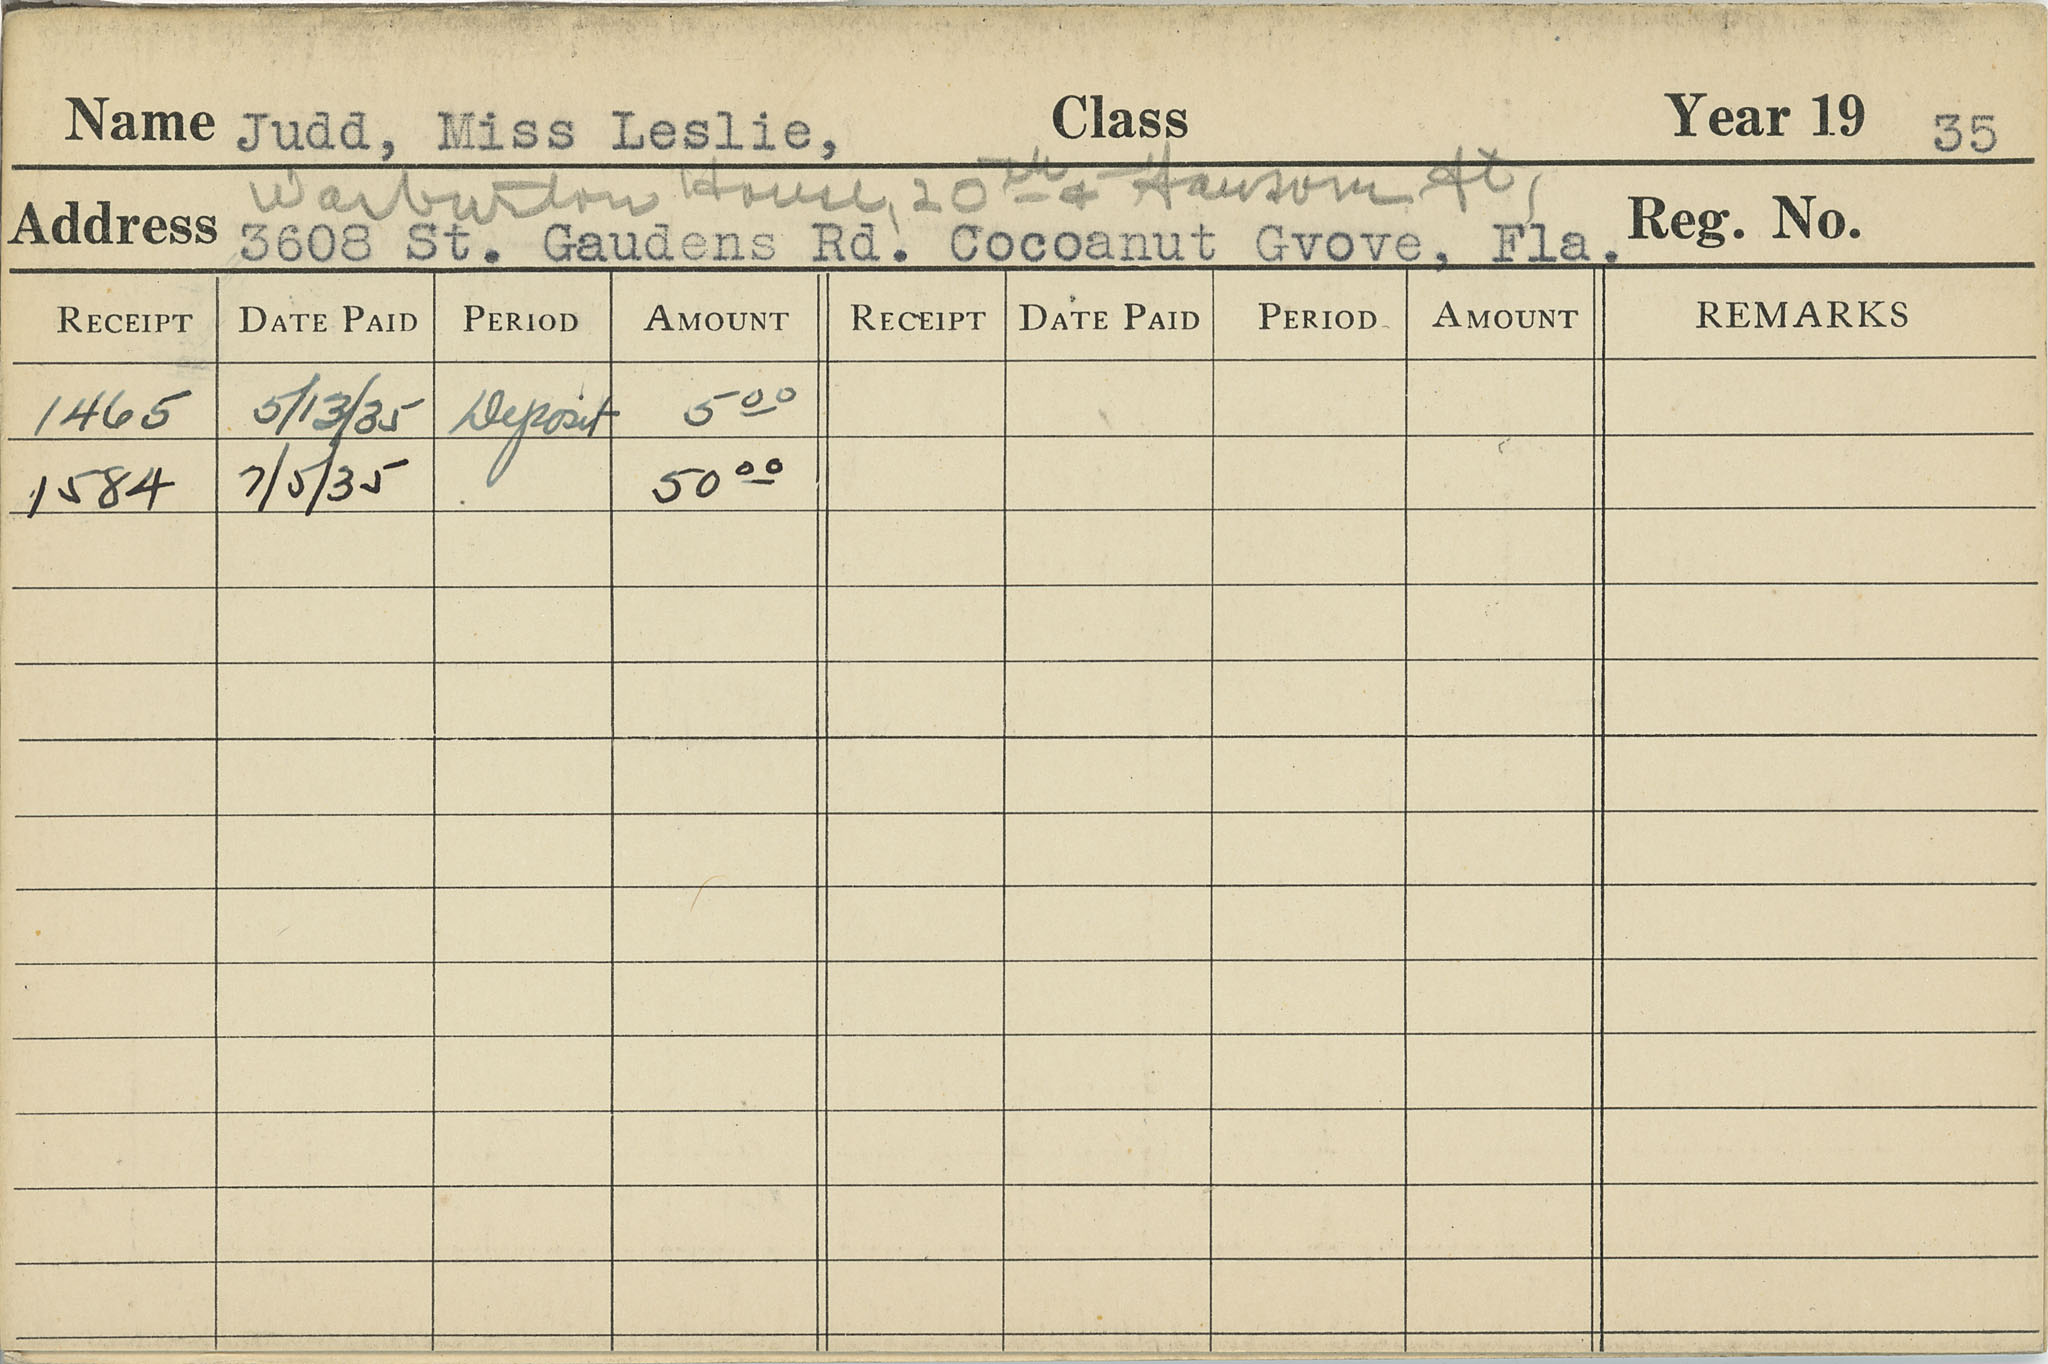 Name Judd, Miss Leslie, Class Year 19 35
Warburton House, 20th & Hansom St,
Address 3608 St. Gaudens Rd. Cocoanut Gvove, Fla. Reg. No.
RECEIPT DATE PAID PERIOD AMOUNT RECEIPT DATE PAID PERIOD AMOUNT REMARKS
1465 5/13/35 Deposit 5 00
1584 7/5/35 50 00